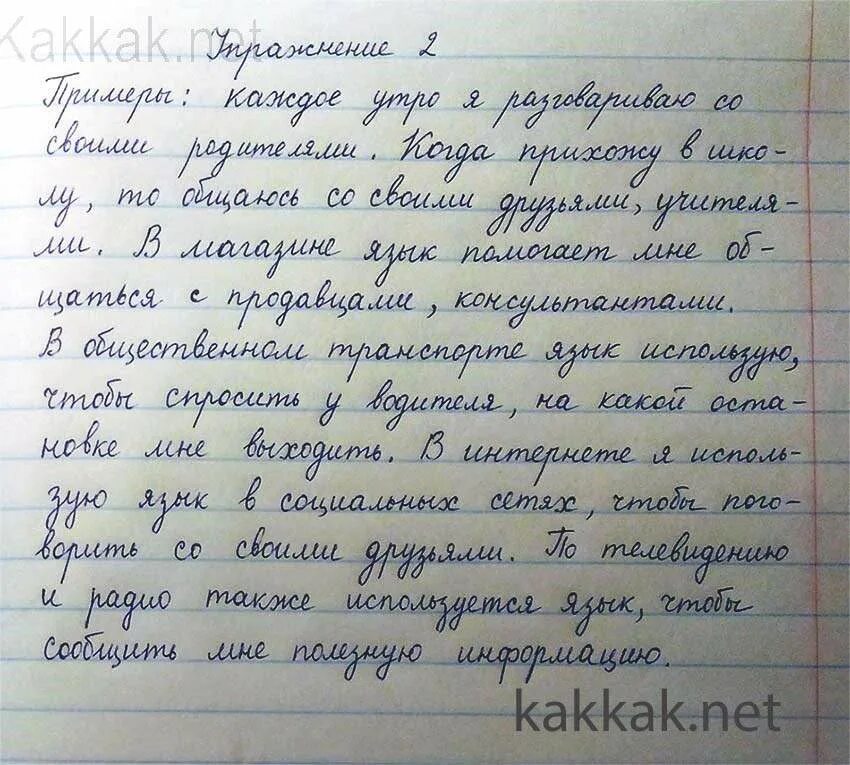 Kakkak.net
Упражнение 2
Примеры: каждое утро я разговариваю со
своими родителями. Когда прихожу в шко-
лу, то общаюсь со своими друзьями, учителя-
ми. В магазине язык помогает мне об-
щаться с продавцами, консультантами.
В общественном транспорте язык использую,
чтобы спросить у водителя, на какой оста-
новке мне выходить. В интернете я исполь-
зую язык в социальных сетях, чтобы пого-
ворить со своими друзьями. По телевидению
и радио также используется язык, чтобы
сообщить мне полезную информацию.
kakkak.net